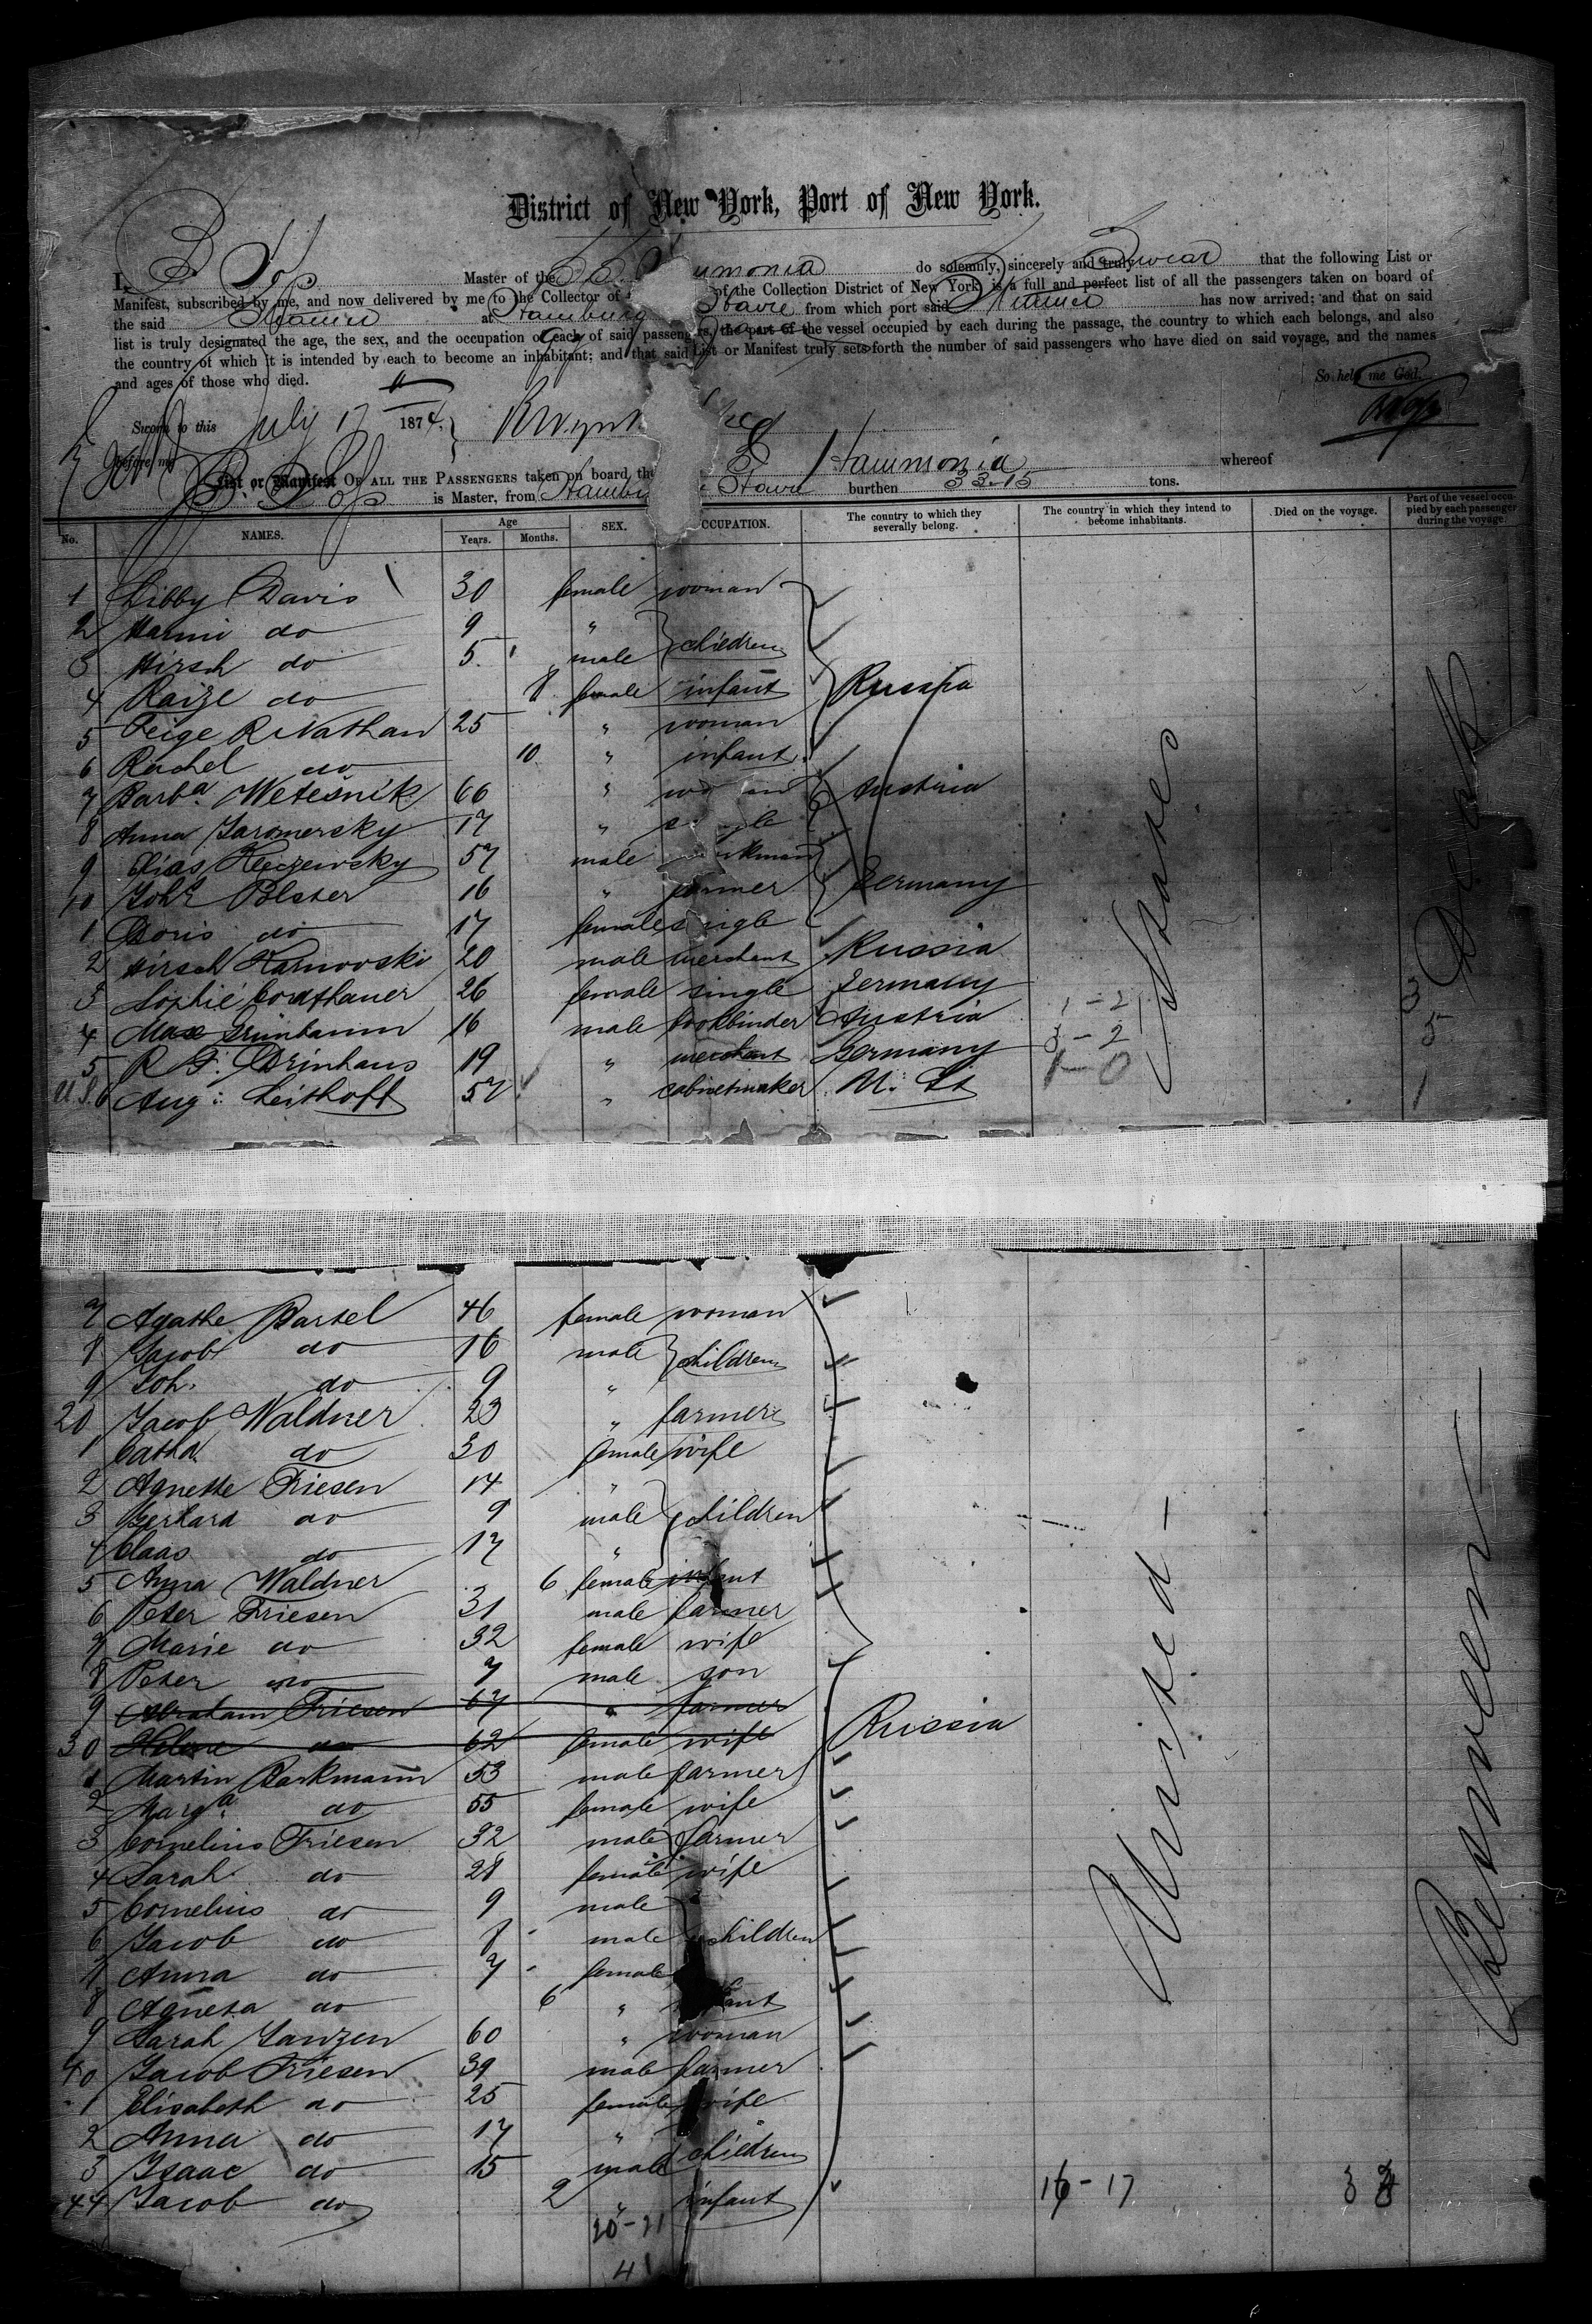 District of New York, Port of New York.
I, B Master of the SS. umonia do solemnly, sincerely and truly Swear that the following List or
Manifest, subscribed by me, and now delivered by me to the Collector of of the Collection District of New York, is a full and perfect list of all the passengers taken on board of
the said Steamer at Hamburg Havre from which port said Steamer has now arrived; and that on said
list is truly designated the age, the sex, and the occupation of each of said passengers, the part of the vessel occupied by each during the passage, the country to which each belongs, and also
the country of which it is intended by each to become an inhabitant; and that said List or Manifest truly sets forth the number of said passengers who have died on said voyage, and the names
and ages of those who died. So help me God.
Sworn to this July 17 1874.
before me
List or Manifest OF ALL THE PASSENGERS taken on board, the Hammonia whereof
is Master, from Hambu Havre burthen 3315 tons.
No. NAMES. Age Years. Months. SEX. CCUPATION. The country to which they severally belong. The country in which they intend to become inhabitants. Died on the voyage. Part of the vessel occupied by each passenger during the voyage.
1 Libby Davis 30 female woman
2 do 9 "
3 Hirsch do 5 male children
4 Raize do 8 female infant Russia
5 Feige R Nathan 25 " woman
6 Rachel do 10 " infant
7 Barba. Wetesnik 66 " Austria
8 Anna Jaromersky 17 "
9 Elias 57 male
10 Johs Polster 16 " farmer Germany
1 Doris do 17 female single
2 Hirsch Karnovski 20 male merchant Russia
3 Sophie 26 female single Germany
4 Max Grünbaum 16 male bookbinder Austria 1-2
5 R F. Drinhaus 19 " merchant Germany 3-2 5
U.S. 6 Aug: Leithoff 57 " cabinetmaker U. St 1-0 1
States
Deck
7 Agathe Bartel 46 female woman
8 Jacob do 16 male children
9 Joh. do 9 "
20 Jacob Waldner 23 " farmer
1 Catha do 30 female wife
2 Agnethe Friesen 14 "
3 Gerhard do 9 male children
4 Claas do 17 "
5 Anna Waldner 6 female infant
6 Peter Friesen 31 male farmer
7 Marie do 32 female wife
8 Peter do 7 male son
9 Abraham Friesen 67 " farmer
30 Helene do 62 female wife Russia
1 Martin Barkmann 53 male farmer
2 Marga. do 55 female wife
3 Cornelius Friesen 32 male farmer
4 Sarah do 28 female wife
5 Cornelius do 9 male
6 Jacob do 8 male children
7 Anna do 7 female
8 Agneta do 6 " infant
9 Sarah Janzen 60 " woman
40 Jacob Friesen 39 male farmer
1 Elisabeth do 25 female wife
2 Anna do 17 "
3 Isaac do 15 male children
44 Jacob do 2 " infant 16-17
20-21
41
United
Between